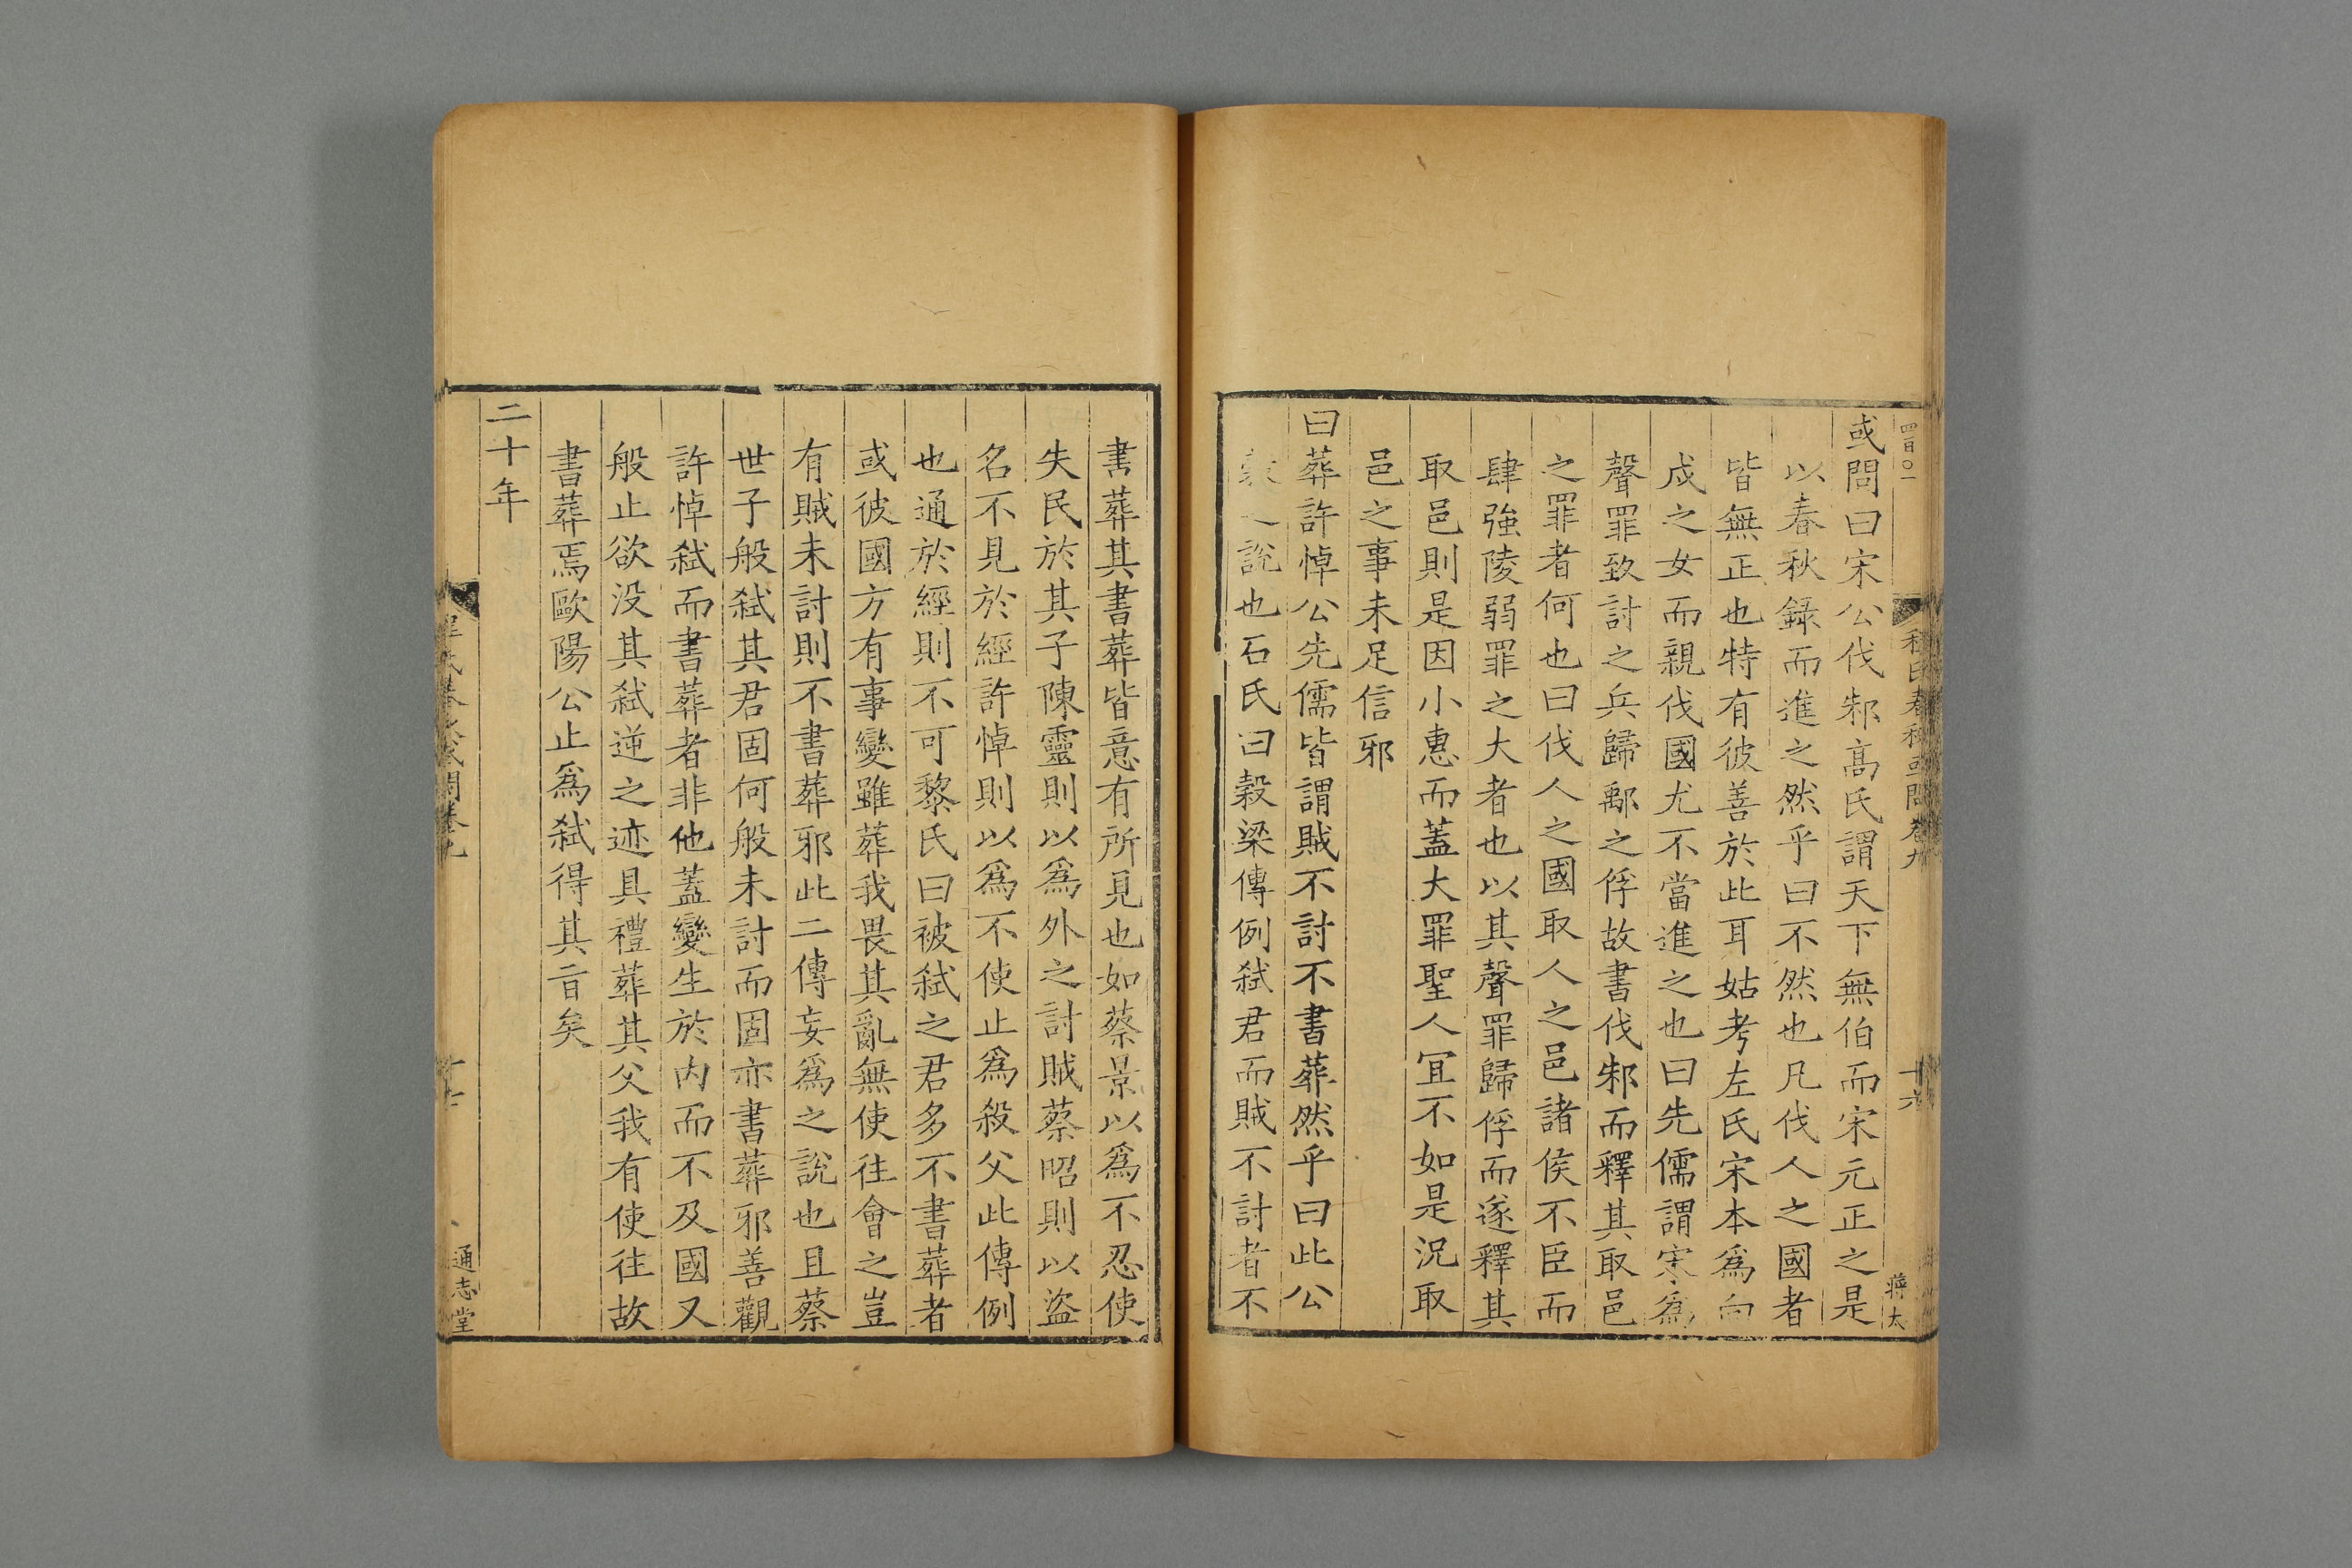 四百〇一
程氏春秋或問卷九
十六
蔣太
或問曰宋公伐邾高氏謂天下無伯而宋元正之是
以春秋録而進之然乎曰不然也凡伐人之國者
皆無正也特有彼善於此耳姑考左氏宋本爲向
戍之女而親伐國尤不當進之也曰先儒謂宋爲
聲罪致討之兵歸鄅之俘故書伐邾而釋其取邑
之罪者何也曰伐人之國取人之邑諸侯不臣而
肆強陵弱罪之大者也以其聲罪歸俘而遂釋其
取邑則是因小惠而蓋大罪聖人宜不如是況取
邑之事未足信邪
曰葬許悼公先儒皆謂賊不討不書葬然乎曰此公
說也石氏曰榖梁傳例弑君而賊不討者不
書葬其書葬皆意有所見也如蔡景以爲不忍使
失民於其子陳靈則以爲外之討賊蔡昭則以盜
名不見於經許悼則以爲不使止爲殺父此傳例
也通於經則不可黎氏曰被弑之君多不書葬者
或彼國方有事變雖葬我畏其亂無使往會之豈
有賊未討則不書葬邪此二傳妄爲之說也且蔡
世子般弑其君固何般未討而固亦書葬邪善觀
許悼弑而書葬者非他蓋變生於内而不及國又
般止欲没其弑逆之迹具禮葬其父我有使往故
書葬焉歐陽公止爲弑得其旨矣
二十年
程氏春秋或問卷九
通志堂